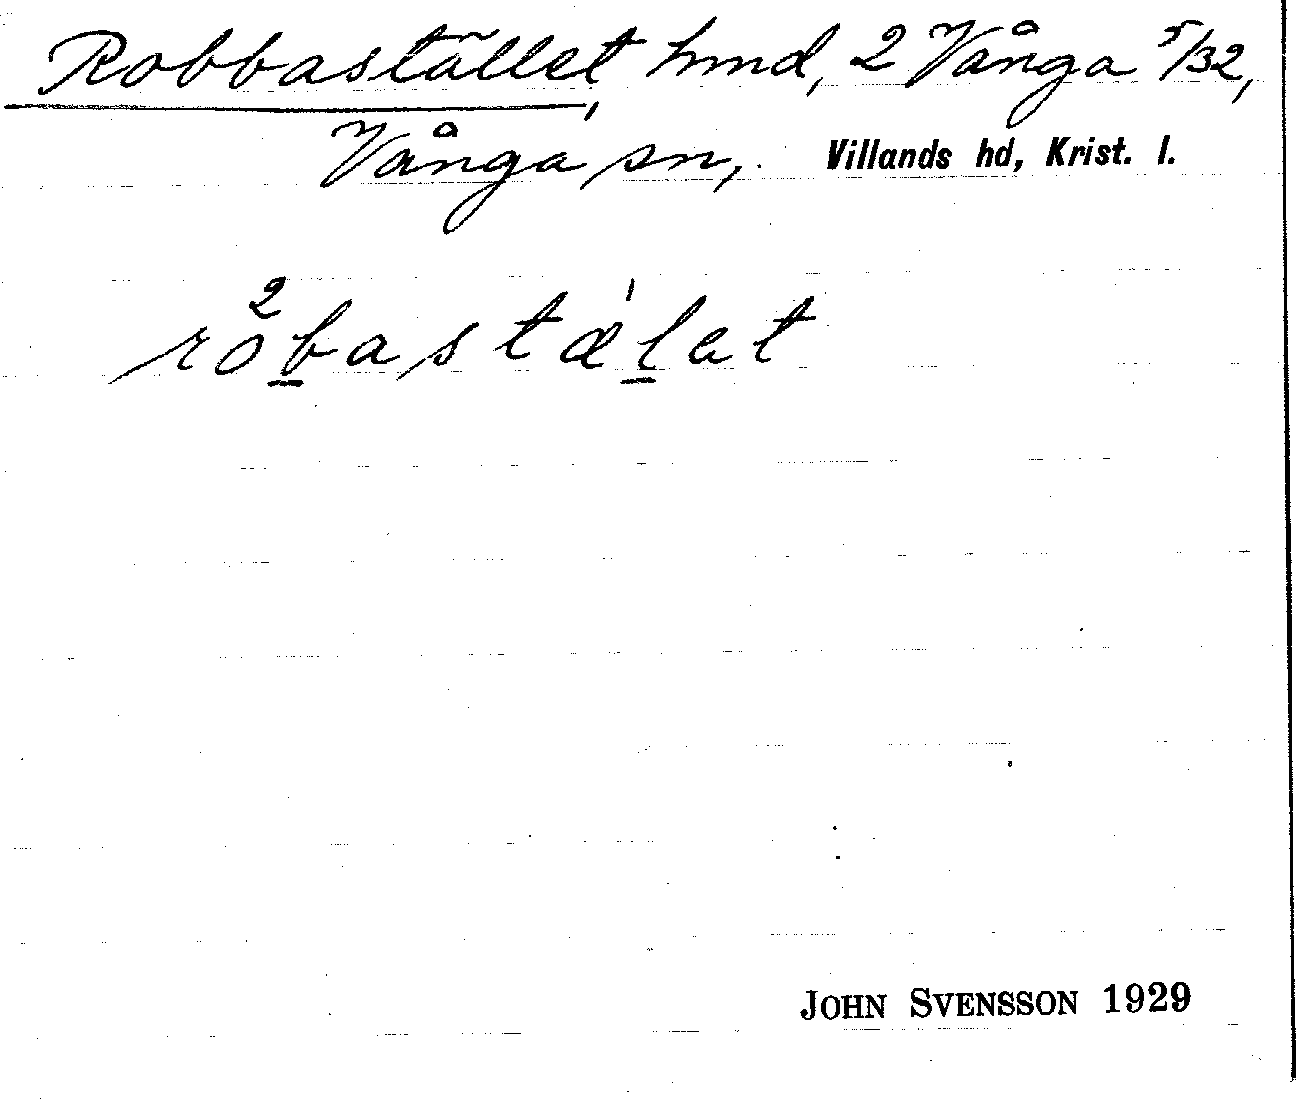 Robbastället, hmd, 2 Vånga 5/32,
Vånga sn, Villands hd, Krist. l.
ro²bastæˈlet
JOHN SVENSSON 1929